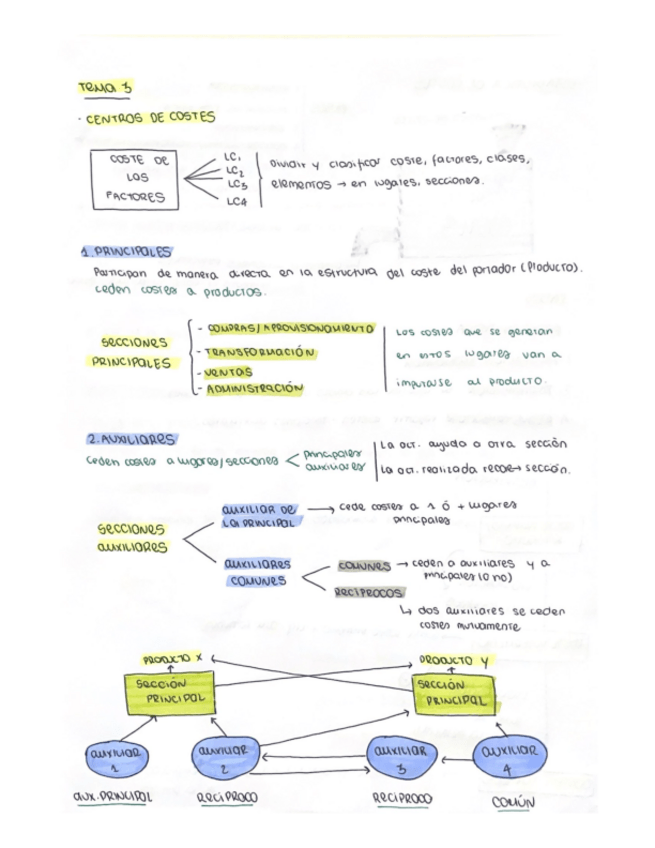 TEMA 3
· CENTROS DE COSTES
COSTE DE
LOS
FACTORES
LC1
LC2
LC3
LC4
Dividir y clasificar coste, factores, clases,
elementos → en lugares, secciones.
1. PRINCIPALES
Participan de manera directa en la estructura del coste del portador (Producto).
Ceden costes a productos.
SECCIONES
PRINCIPALES
- COMPRAS/APROVISIONAMIENTO
- TRANSFORMACIÓN
- VENTAS
- ADMINISTRACIÓN
Los costes que se generan
en estos lugares van a
imputarse al producto.
2. AUXILIARES
Ceden costes a lugares/secciones
principales
auxiliares
La act. ayuda a otra sección
La act. realizada recae → sección.
SECCIONES
AUXILIARES
AUXILIAR DE
LA PRINCIPAL
→ cede costes a 1 ó + lugares
principales
AUXILIARES
COMUNES
COMUNES → ceden a auxiliares y a
principales (o no)
RECÍPROCOS
↳ dos auxiliares se ceden
costes mutuamente
PRODUCTO X
PRODUCTO Y
SECCIÓN
PRINCIPAL
SECCIÓN
PRINCIPAL
AUXILIAR
1
AUXILIAR
2
AUXILIAR
3
AUXILIAR
4
AUX. PRINCIPAL
RECÍPROCO
RECÍPROCO
COMÚN